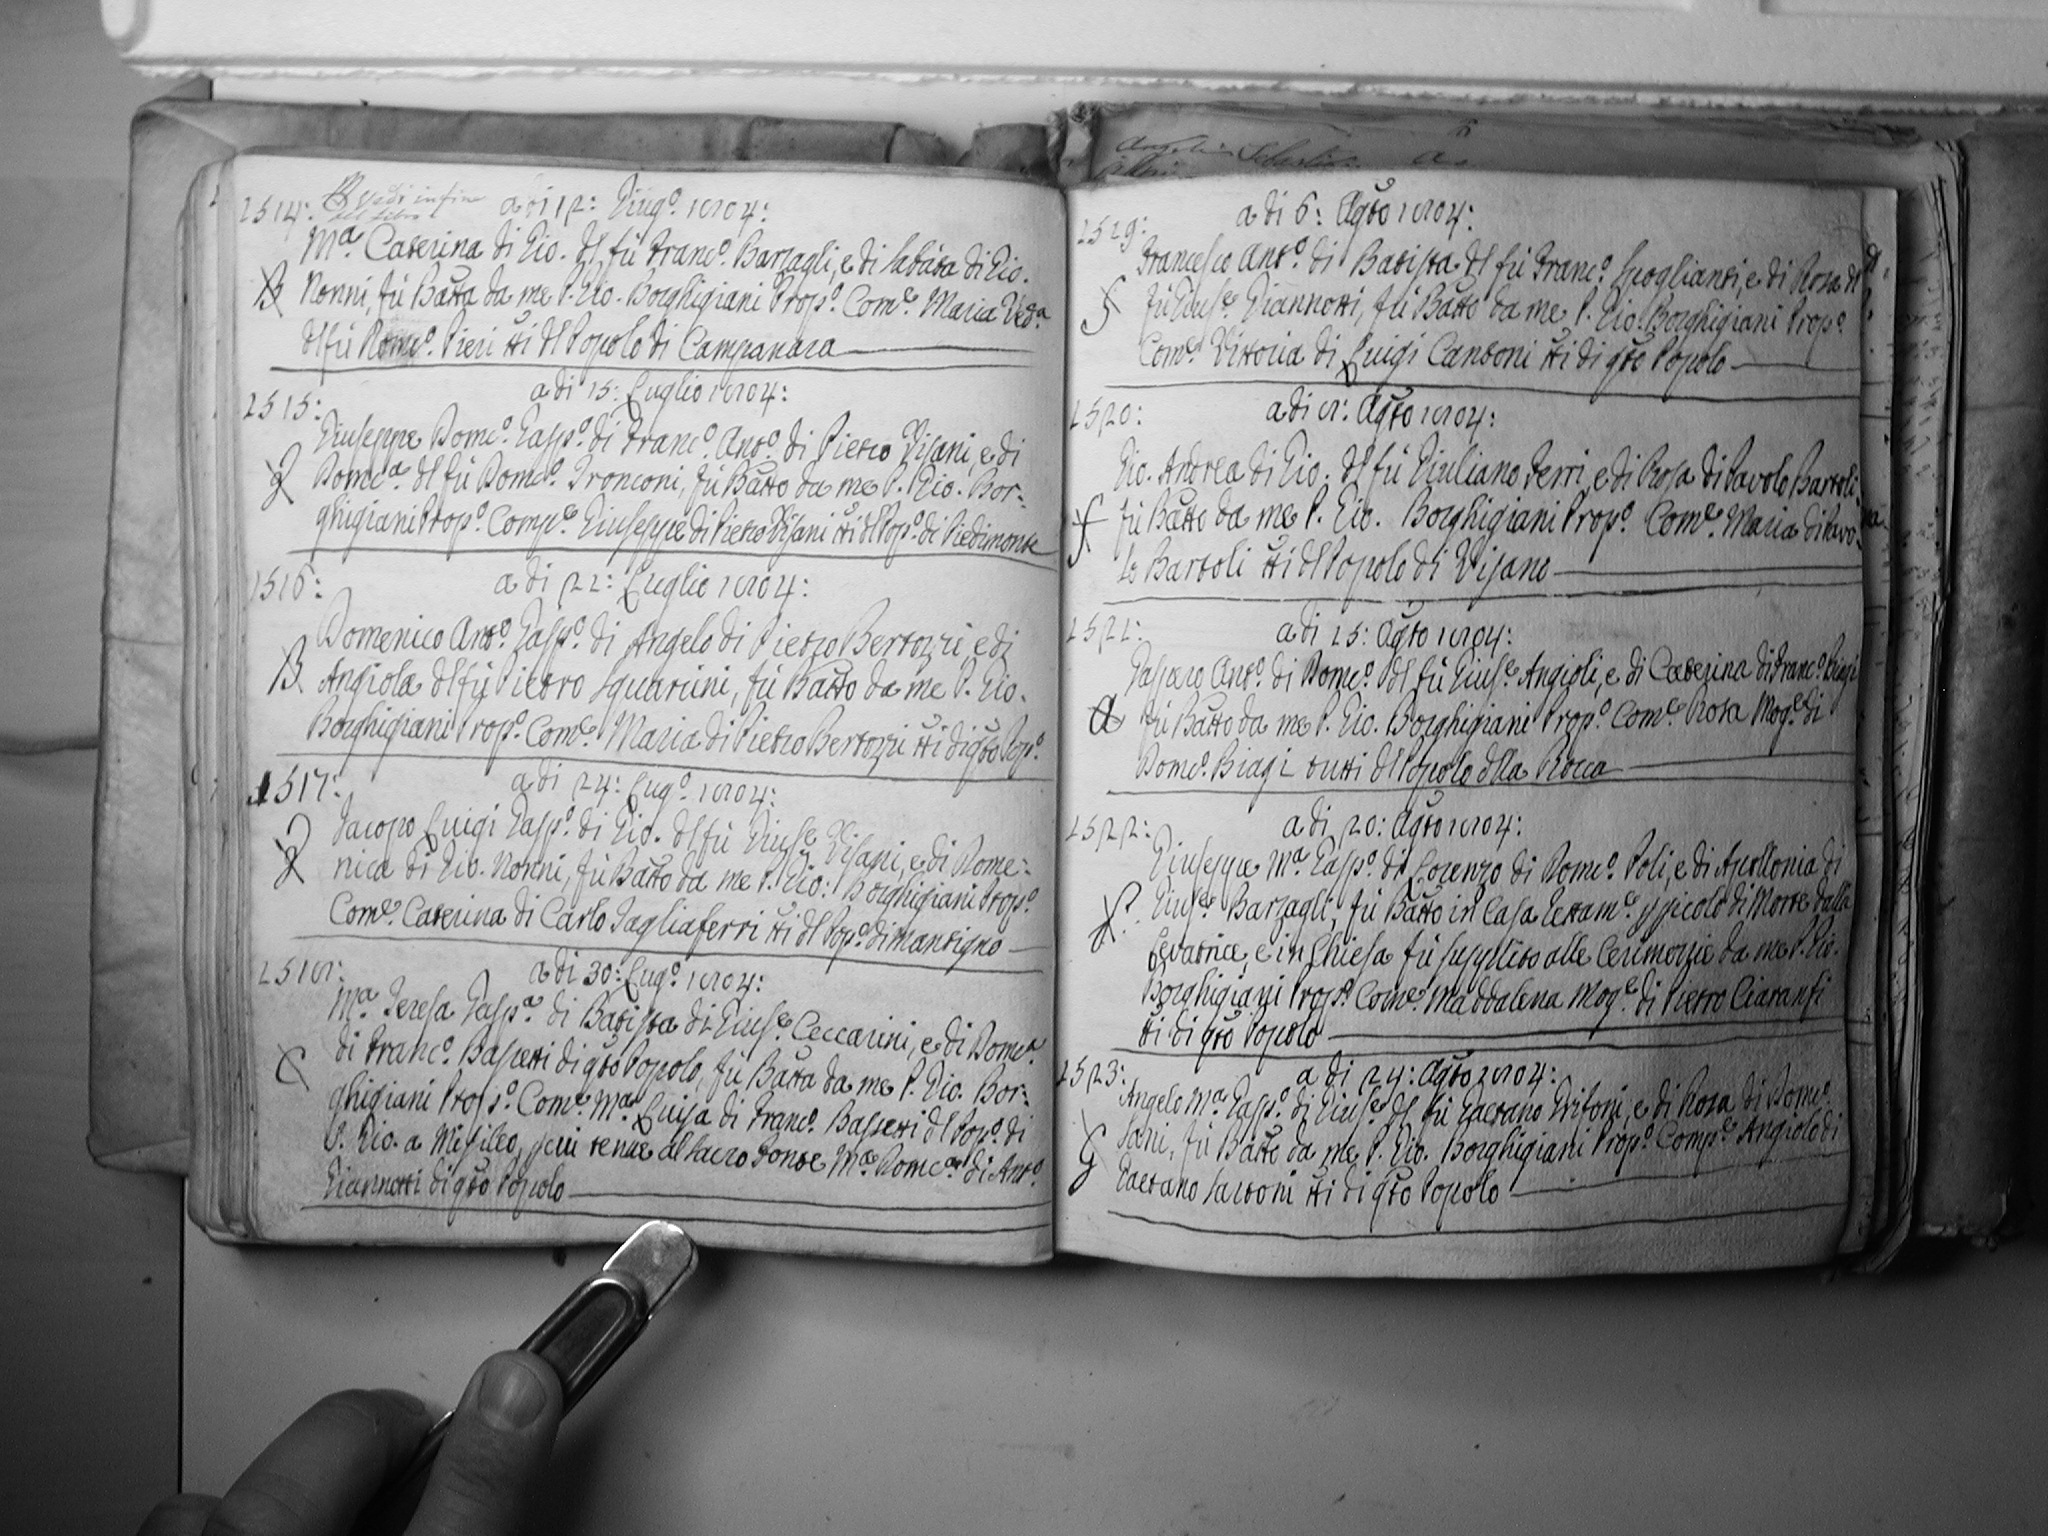 1514: Vedi in fine del libro a di 12: Giugº. 1804:
Mª. Caterina di Gio. dl fù Francº. Barzagli, e di Sabata di Gio.
B Nonni, fù Batta da me P. Gio. Borghigiani Propº. Comᵉ. Maria Vedª.
dl fù Domcº. Pieri tti dl Popolo di Campanara
1515: a di 15: Luglio 1804:
Giuseppe Domcº. Gaspº. di Francº. Antº. di Pietro Visani, e di
Domcª. dl fù Domcº. Tronconi, fù Batto da me P. Gio. Bor-
ghigiani Propº. Compᵉ. Giuseppe di Pietro Visani tti dl Popº. di Piedimonte
1516: a di 21: Luglio 1804:
Domenico Antº. Gaspº. di Angelo di Pietro Bertozzi, e di
B Angiola dl fù Pietro Squarcini, fù Batto da me P. Gio.
Borghigiani Propº. Comᵉ. Maria di Pietro Bertozzi tti di qto Popº.
1517: a di 24: Lugº. 1804:
Jacopo Luigi Gaspº. di Gio. dl fù Giusᵉ. Visani, e di Dome-
nica di Gio. Nonni, fù Batto da me P. Gio: Borghigiani Propº.
Comᵉ. Caterina di Carlo Tagliaferri tti dl Popº. di Mantigno
1518: a di 30: Lugº. 1804:
Mª. Teresa Gaspª. di Batista di Giusᵉ. Ceccarini, e di Domcª.
C di Francº. Bassetti di qto Popolo, fù Batta da me P. Gio. Bor-
ghigiani Propº. Comᵉ. Mª. Luisa di Francº. Bassetti dl Popº. di
S. Gio. a Misileo, p cui tenne al sacro Fonte Mª. Domcª. di Antº.
Giannotti di qto Popolo
1519: a di 6: Agto 1804:
Francesco Antº. di Batista dl fù Francº. Spoglianti, e di Rosa dl
S fù Giusᵉ. Giannotti, fù Batto da me P. Gio. Borghigiani Propº.
Comᵉ. Vittoria di Luigi Cantoni tti di qto Popolo
1520: a di 8: Agto 1804:
Gio. Andrea di Gio. dl fù Giuliano Ferri, e di Rosa di Pavolo Bartoli
F fù Batto da me P. Gio. Borghigiani Propº. Comᵉ. Maria di Pavo-
lo Bartoli tti dl Popolo di Visano
1521: a di 15: Agto 1804:
Gasparo Antº. di Domcº. dl fù Giusᵉ. Angioli, e di Caterina di Francº. Biagi
A fù Batto da me P. Gio. Borghigiani Propº. Comᵉ. Rosa Mogᵉ. di
Domcº. Biagi tutti dl Popolo dlla Rocca
1522: a di 20: Agto 1804:
Giuseppe Mª. Gaspº. di Lorenzo di Domcº. Poli, e di Apollonia di
P. Giusᵉ. Barzagli, fù Batto in Casa pericolo di Morte dalla
Levatrice, e in Chiesa fù supplito alle Cerimonie da me P. Gio.
Borghigiani Propº. Comᵉ. Maddalena Mogᵉ. di Pietro Ciaranfi
tti di qto Popolo
1523: a di 24: Agto 1804:
Angelo Mª. Gaspº. di Giusᵉ. dl fù Gaetano Grifoni, e di Rosa di Domcº.
G Sani, fù Batto da me P. Gio. Borghigiani Propº. Compᵉ. Angiolo di
Gaetano Sartoni tti di qto Popolo